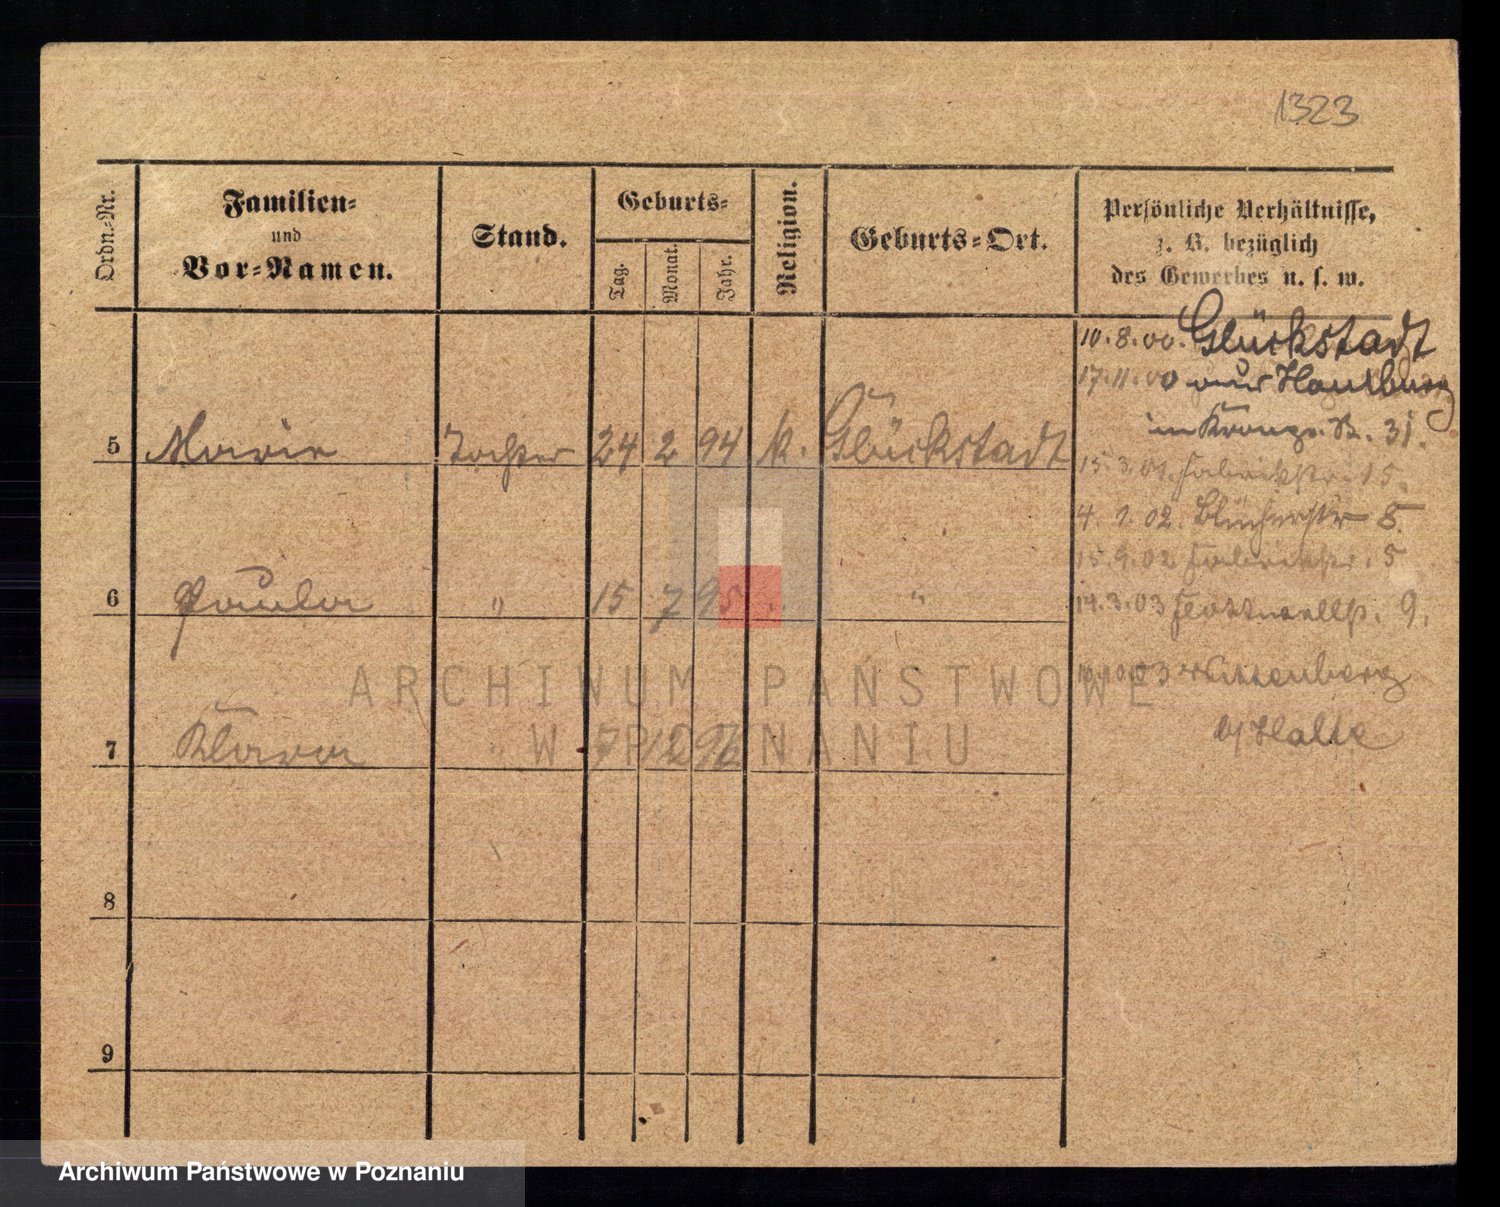 1323
Ordn.-Nr.
Familien-
und
Vor-Namen.
Stand.
Geburts-
Tag.
Monat.
Jahr.
Religion.
Geburts-Ort.
Persönliche Verhältnisse,
z. B. bezüglich
des Gewerbes u. s. w.
10.8.00. Glückstadt
17.11.00 aus Hamburg
im Kronpr. St. 31.
5 Marie Tochter 24 2 94 k. Glückstadt
15.3.01. Fabrikstr. 15.
4.1.02. Blücherstr 5.
15.9.02 Fabrikstr. 5
6 Paula " 15 7 95 "
14.3.03 9.
10.10.03 Wittenberg
b/Halle
7 Klara " 7 12 96
8
9
ARCHIWUM PAŃSTWOWE
W POZNANIU
Archiwum Państwowe w Poznaniu